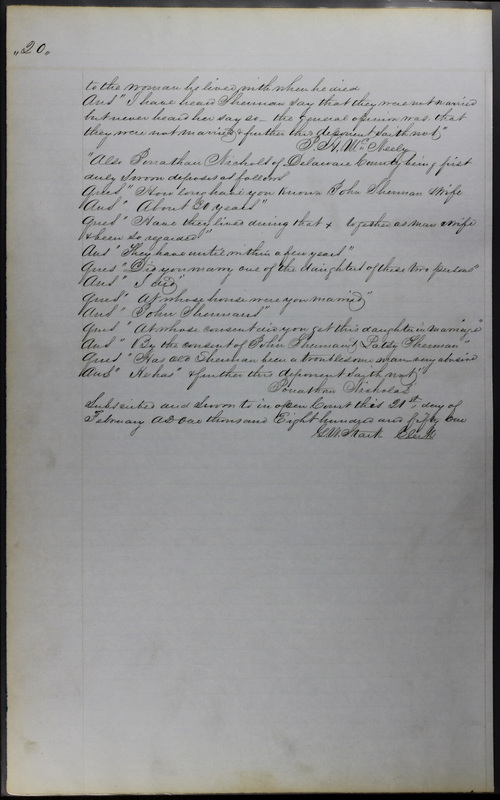 "20"
to the woman he lived with when he died
Ans" I have heard Sherman say that they were not married
but never heard her say so - the general opinion was that
they were not married & further this deponent saith not"
P. H. McNeely
"Also Jonathan Nichols of Delaware County being first
duly Sworn deposes as follows
Ques" How long have you known John Sherman & wife
Ans" About 20 years"
Ques" Have they lived during that + together as man & wife
& been so regarded"
Ans" They have until within a few years"
Ques" Did you marry one of the daughters of these two persons"
Ans" I did"
Ques" At whose house were you married"
Ans" John Shermans"
Ques" At whose consent did you get this daughter in marriage"
Ans" By the consent of John Sherman & Patsy Sherman"
Ques" Has old Sherman been a troublesome man any abusive
Ans" He has" & further this deponent saith not"
Jonathan Nicholas
Subscribed and Sworn to in open Court this 21st day of
February AD One thousand Eight hundred and fifty One
G. W. Stark Clerk